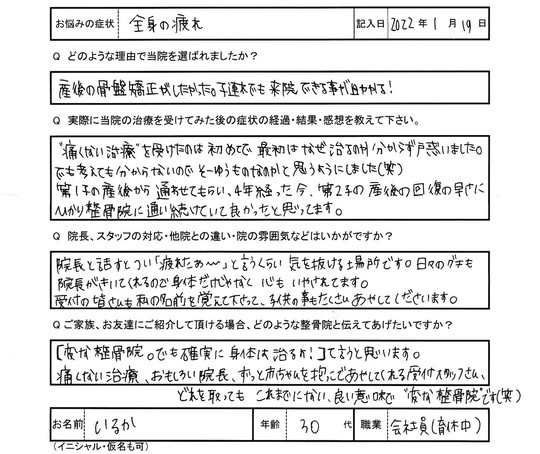 お悩みの症状 全身の疲れ 記入日 2022年 1月 19日
Q どのような理由で当院を選ばれましたか？
産後の骨盤矯正がしたかった。子連れでも来院できる事が助かる！
Q 実際に当院の治療を受けてみた後の症状の経過・結果・感想を教えて下さい。
"痛くない治療"を受けたのは初めてで最初はなぜ治るのか分からず戸惑いました。
でも考えても分からないのでそーゆうものなのかと思うようにしました(笑)
第1子の産後から通わせてもらい、4年経った今、第2子の産後の回復の早さに
ひかり整骨院に通い続けていて良かったと思ってます。
Q 院長、スタッフの対応・他院との違い・院の雰囲気などはいかがですか？
院長と話すとつい「疲れたぁ〜」と言うくらい気を抜ける場所です。日々のグチも
院長がきいてくれるので身体だけじゃなく心もいやされてます。
受付の皆さんも私の名前を覚えて下さって、子供の事もたくさんあやしてくださいます。
Q ご家族、お友達にご紹介して頂ける場合、どのような整骨院と伝えてあげたいですか？
[変な整骨院。でも確実に身体は治るよ！]て言うと思います。
痛くない治療、おもしろい院長、ずっと赤ちゃんを抱っこであやしてくれる受付スタッフさん、
どれを取ってもこれまでにない、良い意味で"変な整骨院"です(笑)
お名前 いるか 年齢 30 代 職業 会社員(育休中)
(イニシャル・仮名も可)